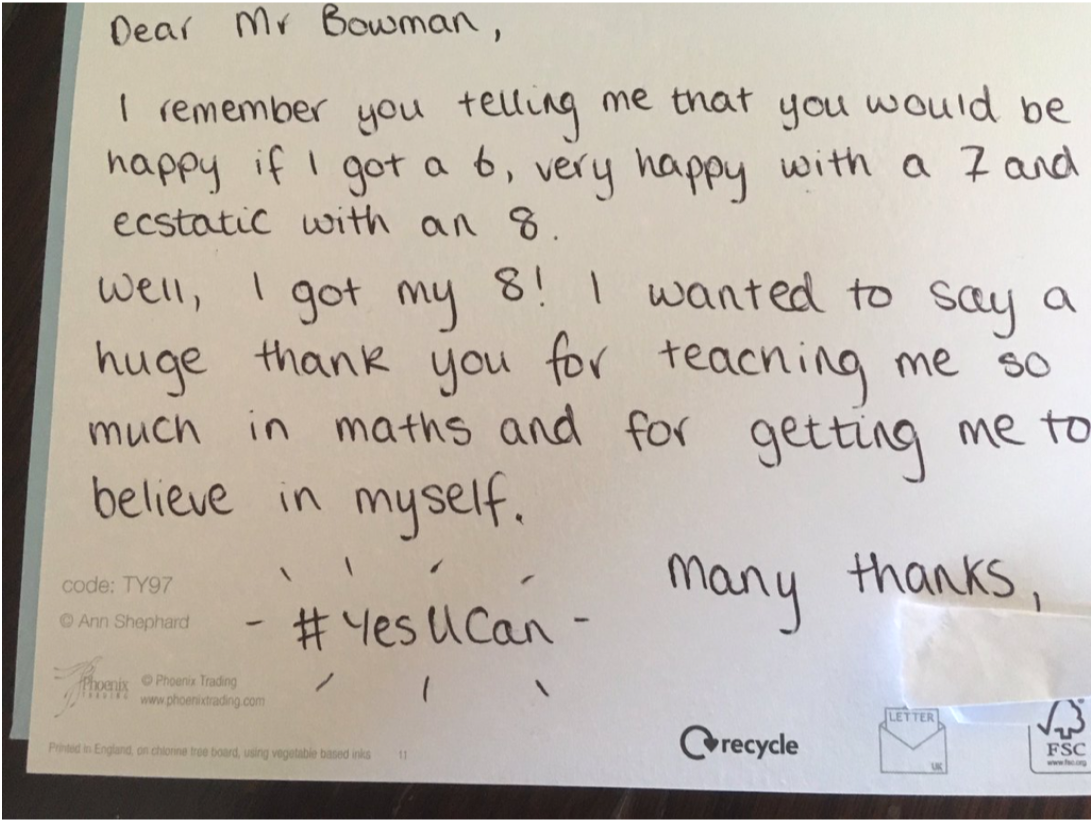 Dear Mr Bowman,
I remember you telling me that you would be
happy if I got a 6, very happy with a 7 and
ecstatic with an 8.
Well, I got my 8! I wanted to say a
huge thank you for teaching me so
much in maths and for getting me to
believe in myself.
Many thanks,
- #YesUCan -
code: TY97
© Ann Shephard
Phoenix
TRADING
© Phoenix Trading
www.phoenixtrading.com
Printed in England, on chlorine free board, using vegetable based inks 11
recycle
LETTER
UK
FSC
www.fsc.org